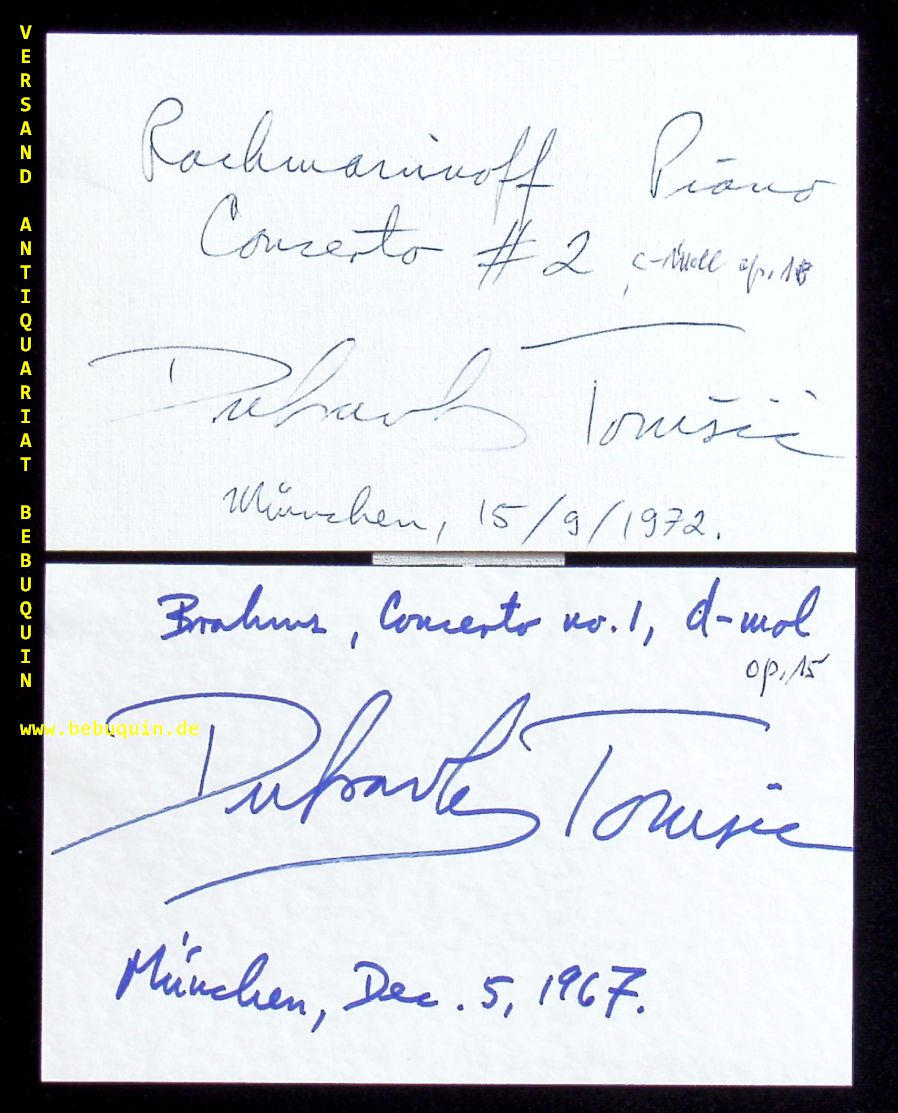 VERSAND ANTIQUARIAT BEBUQUIN
www.bebuquin.de
Rachmaninoff Piano
Concerto #2 c-Moll op. 18
Dubravka Tomšič
München, 15/9/1972.
Brahms, Concerto no. 1, d-mol
op. 15
Dubravka Tomšič
München, Dec. 5, 1967.